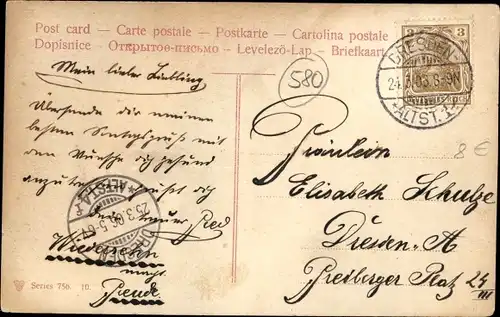 Post card – Carte postale – Postkarte – Cartolina postale
Dopisnice – Открытое-письмо – Levelező-Lap – Briefkaart
3 3
DRESDEN
24.3.06. 8-9N
* ALTST. 1
580
8 €
Mein lieber Liebling
Übersende dir meinen
besten Sonntagsgruß mit
dem Wunsche dich gesund
anzutreffen
dich
dein treuer
DRESDEN
25.3.06. 5-6
ALTST.
Wiedersehn
macht
Freude.
Fräulein
Elisabeth Schulze
Dresden-A
Freiberger Platz 24
III
Series 750. 10.